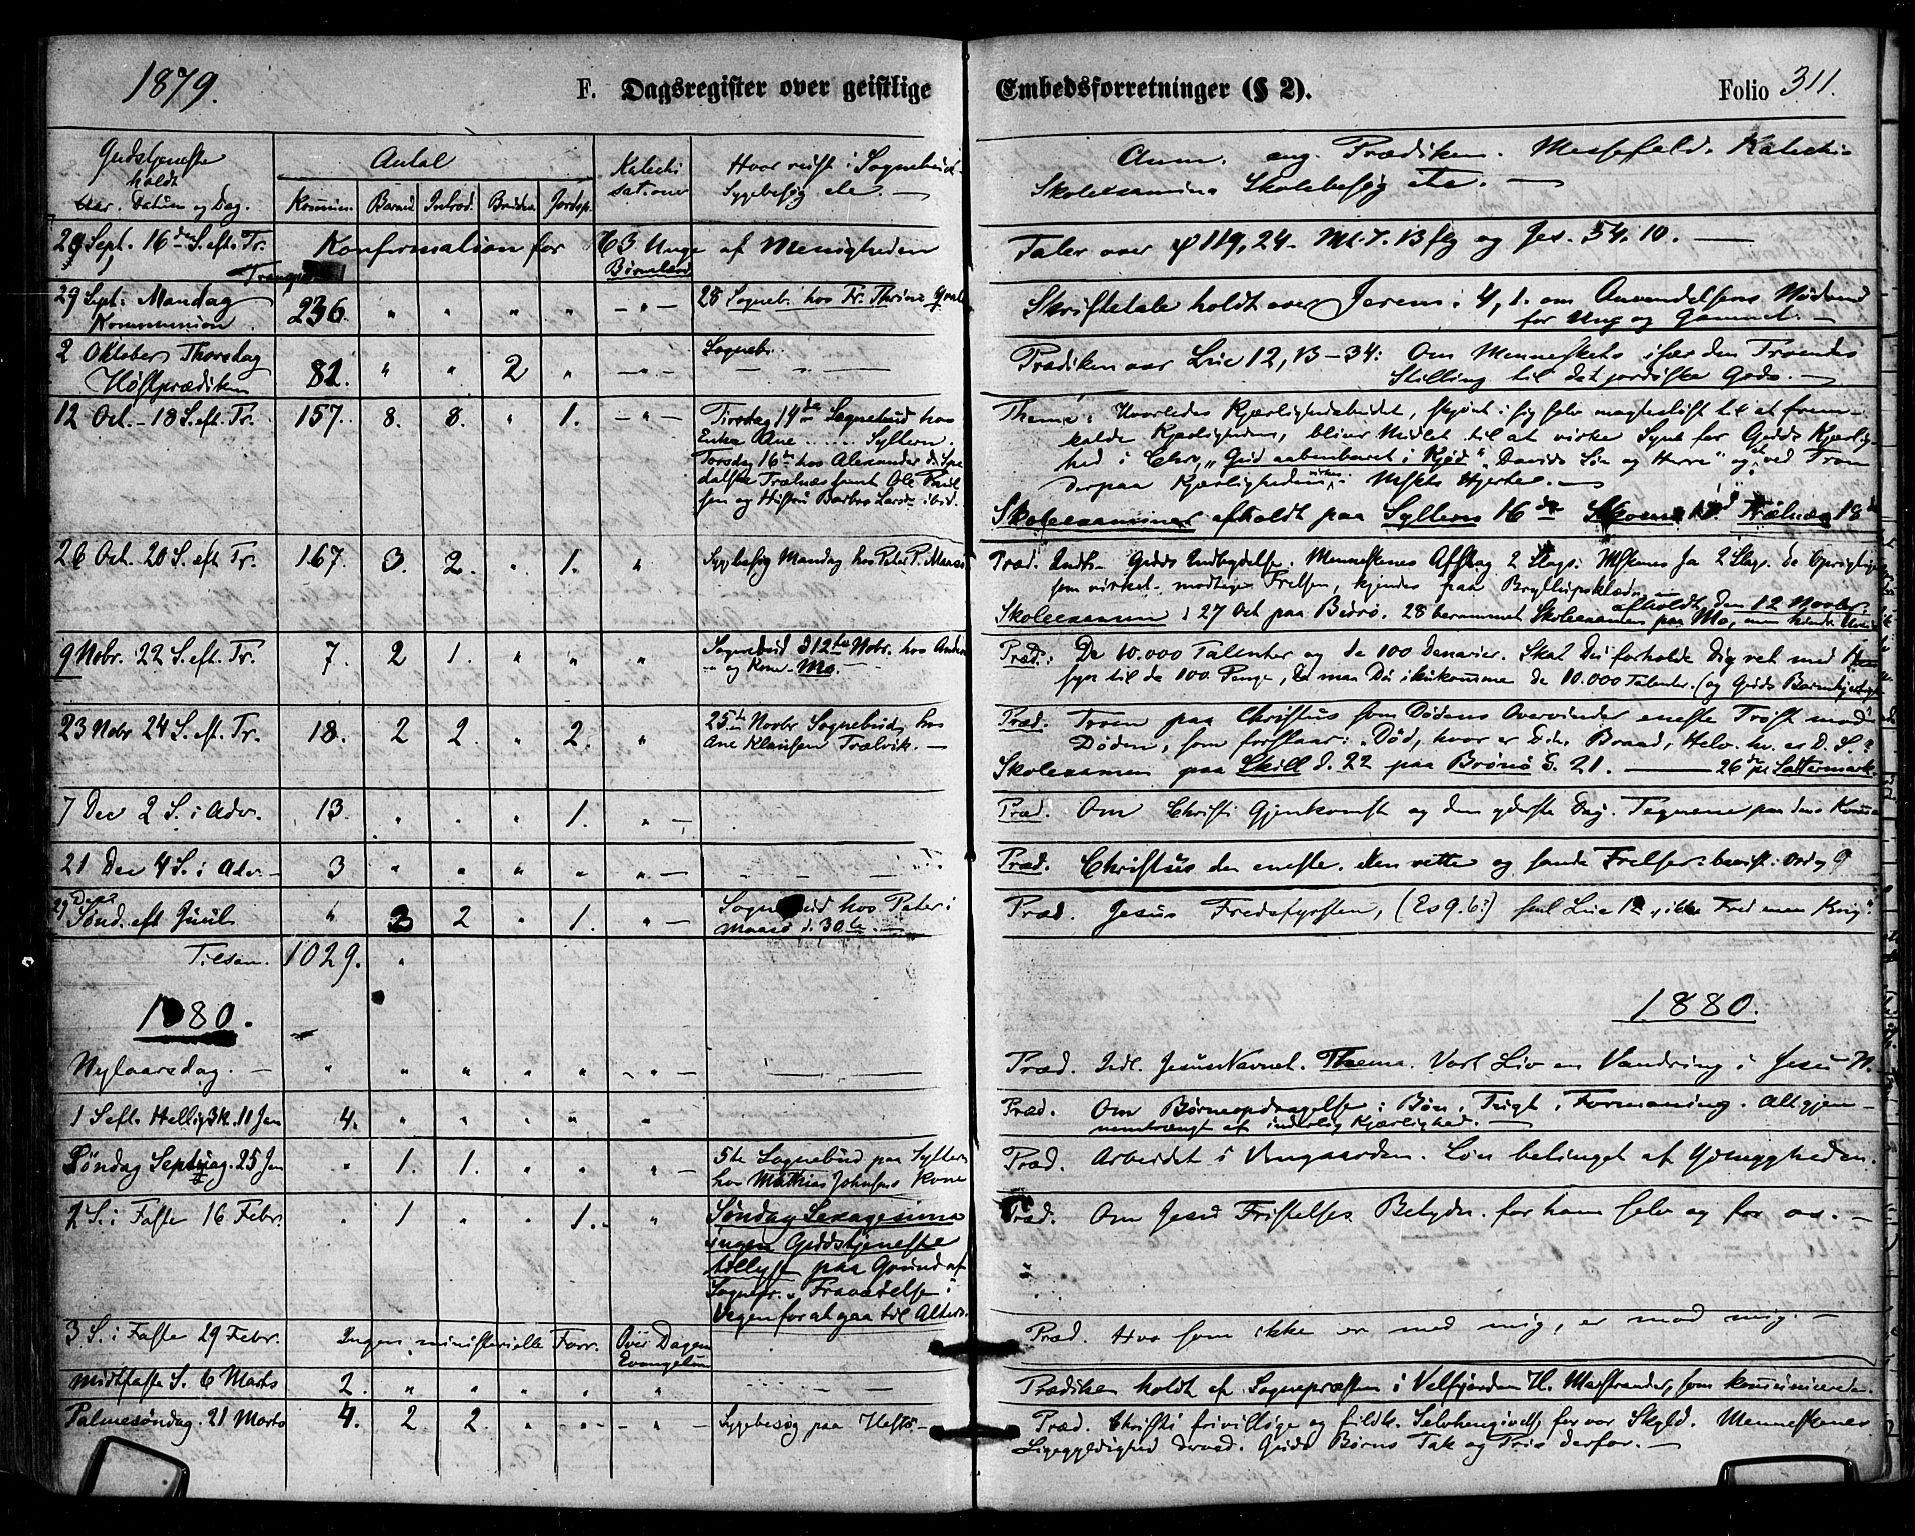 1879.
F. Dagsregister over geistlige Embedsforretninger (§ 2).
Folio 311.
Gudstjeneste holdt
Aar. Datum og Dag.
Antal
Kommun. Barned. Introd. Brudev. Jordsp.
Katechi
sationer
Hvor reist i Sognebud
Sygebesøg etc. —
Anm. ang. Prædiken. Messefald. Katechi-
Skoleexamina Skolebesøg etc. —
Sept. 16de S. eft. Tr. Konfirmation for 63 Unge af Menigheden
Børnelærd
Taler over 119, 24. og Jes. 54. 10. —
29 Sept: Mandag
Kommunion 236. " " " " — " — 28 Sogneb. hos Fr. Thrine
Skriftetale holdt over Jerem: 4, 1. om Omvendelsens Nødvend
for Ung og Gammel. —
2 Oktober Thorsdag
Høstprædiken 82. " " 2 " — " — Sogneb.
Prædiken over Luc 12, 13-34: Om Menneskets især den Troendes
Stilling til det jordiske Gods. —
12 Oct. - 18 S. eft. Tr. 157. 8. 8. " 1. — " — Tirsdag 14de Sognebud hos
Enke Ane ...... Syltern.
Torsdag 16de hos Alexander d. Spe
dalske Trælnes samt Ole
sen og Hustru Barbro ibid.
Thema: Hvorledes Kjærlighedsbudet, skjønt i sig selv magtesløst til at frem-
kalde Kjærligheden, bliver Midlet til at virke Synet for Guds Kjærlig-
hed i Chr. "Gud aabenbaret i Kjød" "Davids Søn og Herre" og ved Troen
derpaa Kjærligheden i Mskets Hjerte. —
Skoleexaminer afholdt paa Syltern 16de 17d Trælnes 18de
26 Oct. 20 S. eft. Tr. 167. 3. 2. " 1. " Sygebesøg Mandag hos Peter P. Maasø
Præd. Indh. Guds Indbydelse. Menneskenes Afslag 2 Slags: Mskens Ja 2 Slags. de Oprigtige
som virkel. modtage Frelsen, kjendes paa Bryllupsklædn.
Skoleexamen d 27 Oct paa Borrø. 28 berammet Skoleexamen paa Mo, afholdt den 12 Novbr.
9 Nobr. 22 S. eft. Tr. 7. 2 1. " " " Sognebud d 12te Nobr. hos Anders
— og Kone - Mo.
Præd.: De 10.000 Talenter og de 100 Denarier. Skal Du forholde Dig ret med
syn til de 100 Penge, da maa Du ihukomme de 10.000 Talenter. (og Guds Barmhjertigh
23 Nobr 24 S. eft. Tr. 18. 2 2. " 2. " 25te Novbr Sognebud hos
Ane Klausen Trælvik. —
Præd. Troen paa Christus som Dødens Overvinder eneste Trøst mod
Døden, som forslaar: "Død, hvor er Din Braad, Helv. hv. er D. S.?
Skoleexamen paa Skill d. 22 paa Brønø S. 21. — 26de pa Sattermark
7 Dec 2 S. i Adv. 13. " " " 1. " —
Præd. Om Christi Gjenkomst og den yderste Dag. Tegnene paa dens Komme
21 Dec 4 S. i Adv — 3 " " " " " —
Præd. Christus den eneste. den rette og sande Frelser:
29 Dec
Sønd. eft Juul " 3 2 " 1. " — Sognebud hos Peter i
Maasø d. 30te. —
Præd. Jesus Fredsfyrsten, (Es 9. 6:) sml Luc 12 "ikke Fred men Krig".
Tilsam. 1029. "
1880.
1880.
Nytaarsdag. — " " " " " — " —
Præd. Indl. Jesu Navnet. Thema. Vort Liv en Vandring i Jesu N.
1 S eft. Hellig 3K. 11 Jan 4. " " " " "
Præd. Om Børneopdragelse i Bøn, Tugt, Formaning. Altgjen-
nemtrængt af inderlig Kjærlighed. —
Søndag Septuag. 25 Jan " 1. 1. " " " — 5te Sognebud paa Syltern
hos Mathias Johnsens Kone
Præd. Arbeidet i Vingaarden. Løn betinget af Ydmygheden.
2 S. i Faste 16 Febr. " 1 " " 1. " Søndag Sexagesima
ingen Gudstjeneste
tillyst paa Grund af
Sognepr.s Fraværelse i
Vegen for at gaa til Alters.
Præd. Om Jesu Fristelses Betydn. for ham selv og for os. —
3 S. i Faste 29 Febr. Ingen ministerielle Forr. Over Dagens
Evangelium
Præd. Hvo som ikke er med mig, er mod mig. —
Midtfaste S. 6 Marts 2. " " " " "
Prædiken holdt af Sognepræsten i Velfjorden H. Marstrander, som kommunicerede.
Palmesøndag. 21 Marts 4. 2 2. " — — " — Sygebesøg paa
Præd. Christi frivillige og Selvhengivelse for vor Skyld. Menneskenes
Ligegyldighed Guds Børns Tak og Pris derfor. —